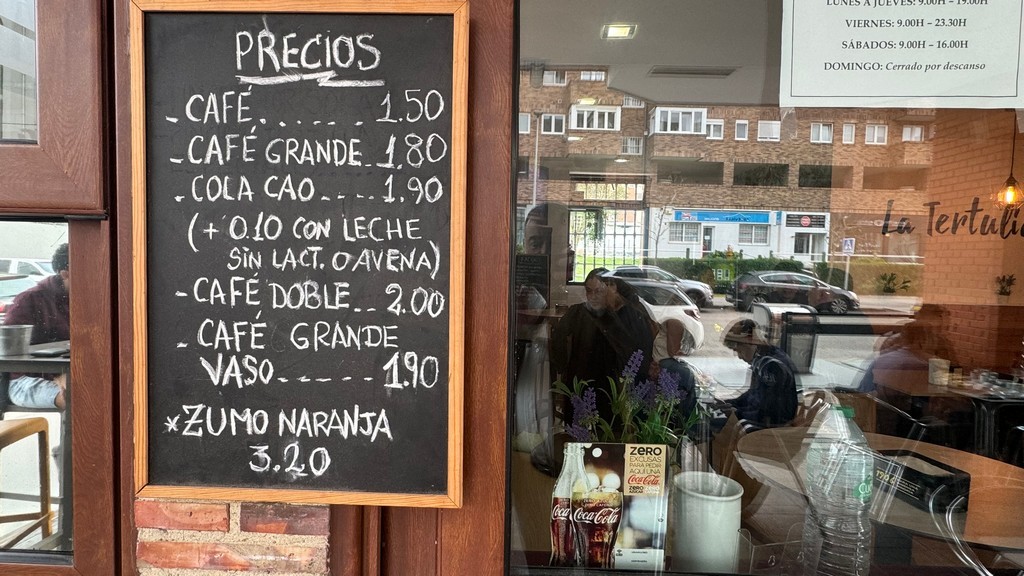 PRECIOS
- CAFÉ. . . . . . . 1.50
- CAFÉ GRANDE.. 1.80
- COLA CAO.... 1.90
(+ 0.10 CON LECHE
SIN LACT. O AVENA)
- CAFÉ DOBLE.. 2.00
- CAFÉ GRANDE
VASO...... 1.90
*ZUMO NARANJA
3.20
LUNES A JUEVES: 9.00H – 19.00H
VIERNES: 9.00H – 23.30H
SÁBADOS: 9.00H – 16.00H
DOMINGO: Cerrado por descanso
La Tertuli
ZERO
EXCUSAS
PARA PEDIR
AQUÍ UNA
Coca-Cola
ZERO
Coca
Coca-Cola